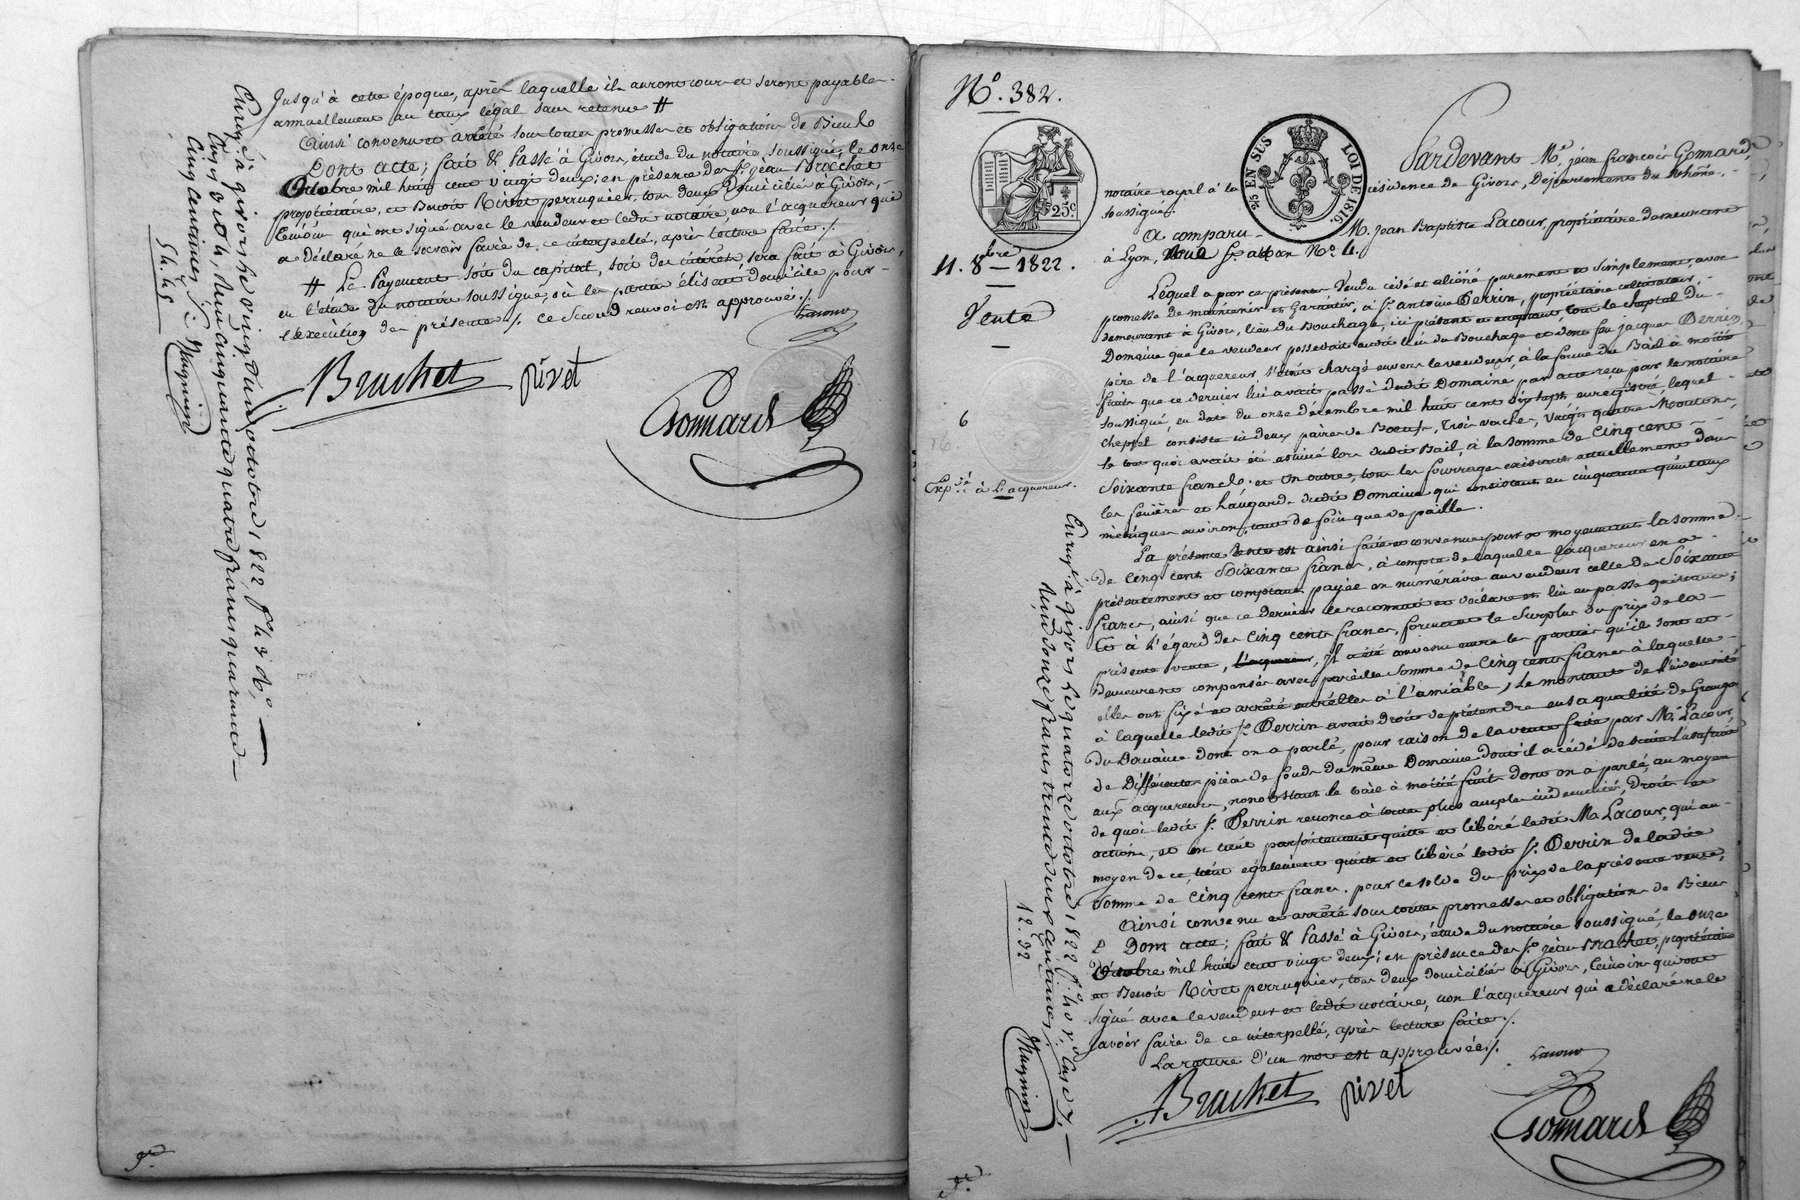 Jusqu'à cette époque, après laquelle ils auront cours et seront payables
annuellement au taux légal sans retenue #
Ainsi convenu et arrêté sous toutes promesses et obligations de Biens
Dont acte; fait & Passé à Givors, étude du notaire soussigné, le onze
Octobre mil huit cent vingt deux; en présence des Srs jean Brochet
propriétaire, et Benoit Rivet perruquier, tous deux Domiciliés à Givors,
témoins qui ont signé avec le vendeur et ledit notaire, non l'acquéreur qui
a déclaré ne le savoir faire de ce interpellé, après lecture faite ./.
# Le Payement soit du capital, soit des intérêts sera fait à Givors,
en l'étude du notaire soussigné, où les parties élisent domicile pour
l'exécution des présentes ./. ce Second renvoi est approuvé ./.
Lacour
Bruchet rivet
Gonnard
Enreg.é à givors le vingt un octobre 1822, f.o
Reçu cinquante quatre francs quarante
Cinq centimes
54.45
Mugnier
N.o 382.
25 EN SUS
LOI DE 1816.
25c
11. 8bre 1822.
Vente
6
Exp.éé à L'acquéreur.
Pardevant M.e jean françois Gonnard,
notaire royal à la résidence de Givors, Département du Rhône,
soussigné.
A comparu
M. Jean Baptiste Lacour, propriétaire demeurant
à Lyon, N.o 4.
Lequel a par ces présentes Vendu cédé et aliéné purement et simplement, avec
promesse de maintenir et Garantir, à S.r antoine Perrin, propriétaire cultivateur
demeurant à Givors, lieu du Bouchage, ici présent et acceptant, tout le cheptal du
Domaine que le vendeur possédait audit lieu du Bouchage et dont feu jacques Perrin,
père de l'acquéreur s'était chargé envers le vendeur, à la forme du Bail à moitié
fruits que ce dernier lui avait passé dudit Domaine, par acte reçu par le notaire
soussigné, en date du onze décembre mil huit cent dix sept enregistré, lequel
cheptel consiste en deux paires de Boeufs, trois vaches, vingt quatre Moutons,
le tout quoi avait été estimé lors dudit Bail, à la somme de Cinq cent
Soixante francs. et En outre, tous les fourrages existants actuellement dans
les fenières et hangards dudit Domaine qui consistent en cinquante quintaux
métriques environ, tant de foin que de paille.
La présente vente est ainsi faite et convenue pour et moyennant la somme
de Cinq cent Soixante francs, à compte de laquelle l'acquéreur en a
présentement et comptant payée en numéraire au vendeur celle de Soixante
francs, ainsi que ce dernier le reconnait et déclare et lui en passe quittance;
Et à l'égard des Cinq cents francs, formant le Surplus du prix de la
présente vente, l'acquéreur, Il a été convenu entre les parties qu'ils sont et
demeurent compensés avec pareille somme de Cinq cents francs à laquelle
elles ont fixé et arrêté entr'elles à l'amiable, le montant de l'indemnité
à laquelle ledit S.r Perrin avait droit de prétendre en sa qualité de Granger
du Domaine dont on a parlé, pour raison de la vente faite par M. Lacour
de Différentes pièces de fonds du même Domaine
aux acquéreurs, nonobstant le bail à moitié fruits dont on a parlé, au moyen
de quoi ledit S.r Perrin renonce à toutes plus amples indemnités, droits et
actions, et en tient parfaitement quitte et libéré ledit M. Lacour, qui au
moyen de ce, tient également quitte et libéré ledit S.r Perrin de ladite
somme de Cinq cents francs, pour le solde du prix de la présente vente,
Ainsi convenu et arrêté sous toutes promesses et obligations de Biens
Dont acte; fait & Passé à Givors, étude du notaire soussigné, le onze
Octobre mil huit cent vingt deux; en présence des S.rs jean Brochet, propriétaire
et Benoit Rivet perruquier, tous deux domiciliés à Givors, témoins qui ont
signé avec le vendeur et ledit notaire, non l'acquéreur qui a déclaré ne le
savoir faire de ce interpellé, après lecture faite ./.
La rature d'un mot est approuvée ./.
Lacour
Bruchet rivet
Gonnard
Enreg.é à givors le quatorze octobre 1822 f.o 40 v.o Cases 7,
Reçu douze francs trente deux centimes
12.32
Mugnier